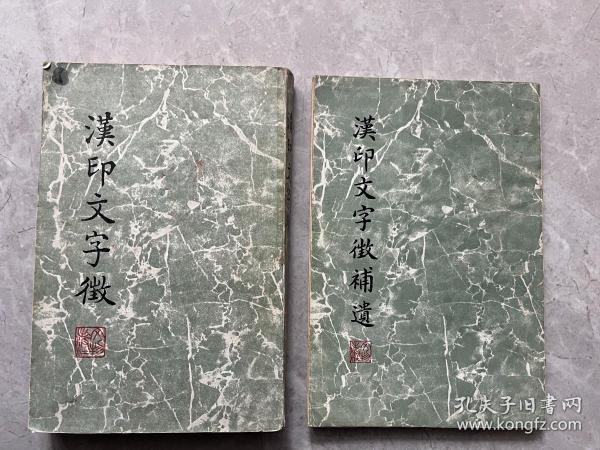 漢印文字徵
漢印文字徵補遺
孔夫子旧書网
www.kongfz.com